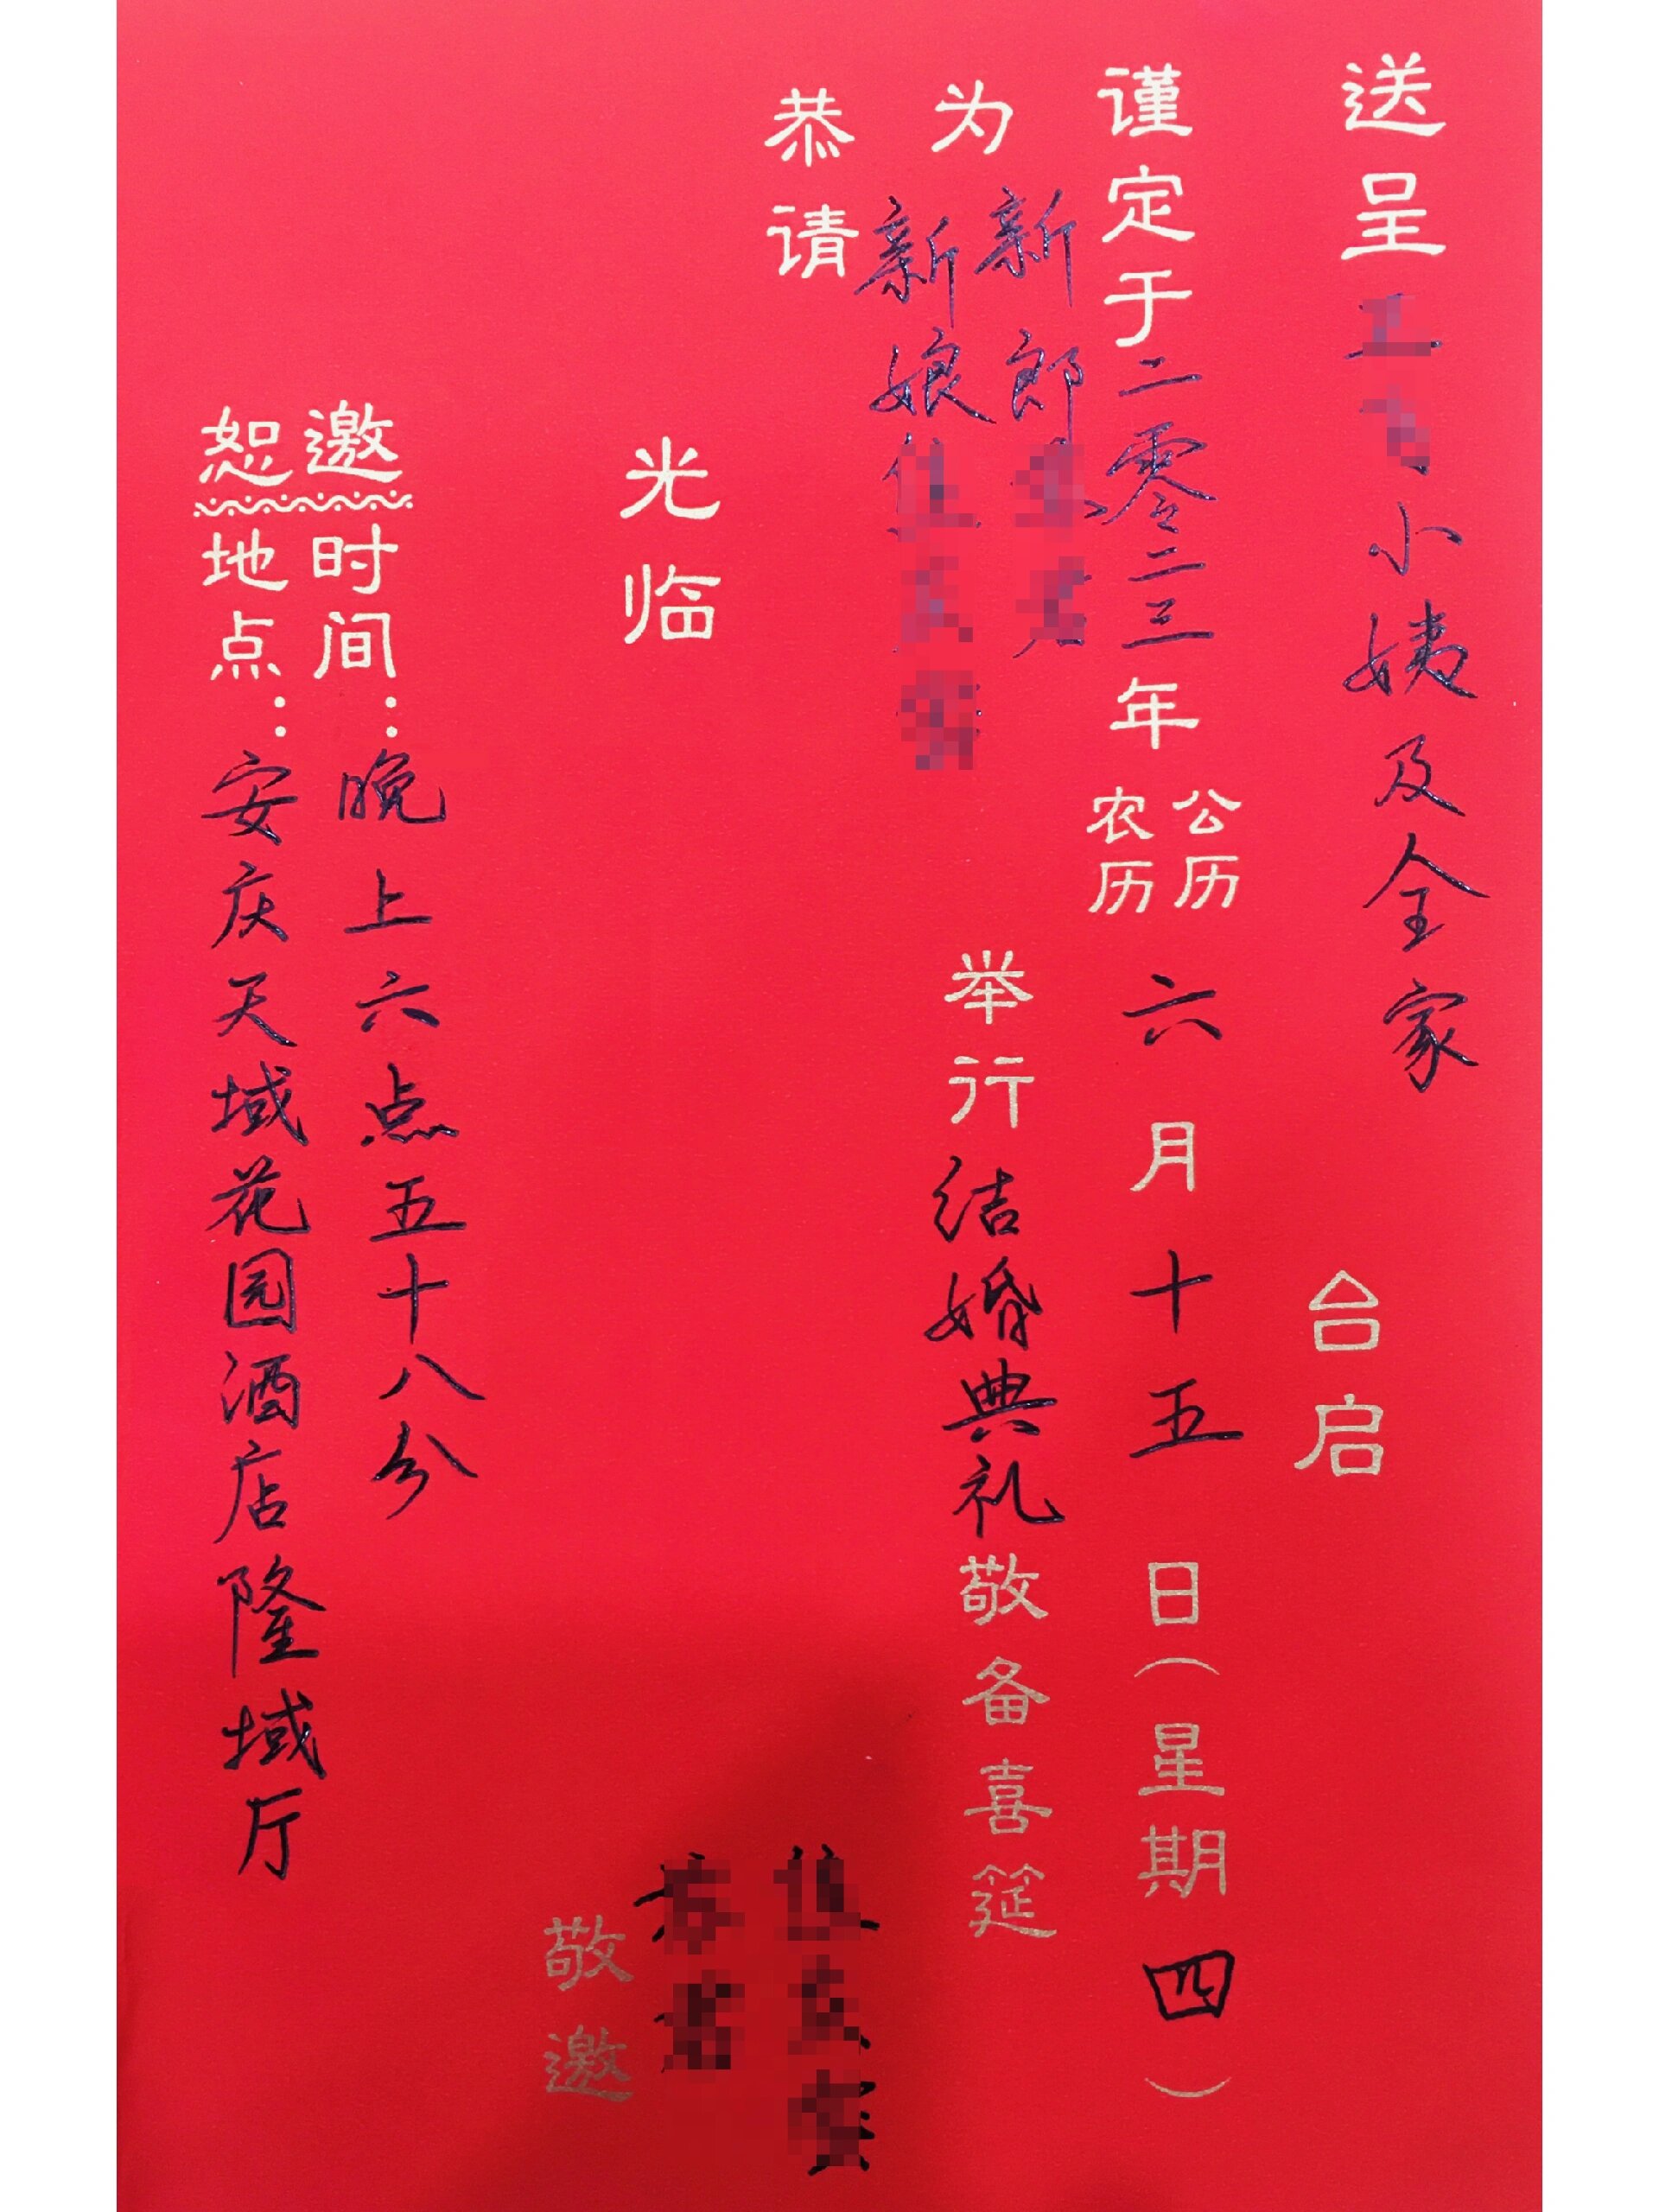 送呈 小姨及全家 台启
谨定于二零二三年公历农历六月十五日(星期四)
为新郎
新娘 举行结婚典礼敬备喜筵
恭请
光临
敬邀
邀时间:晚上六点五十八分
恕地点:安庆天域花园酒店隆域厅